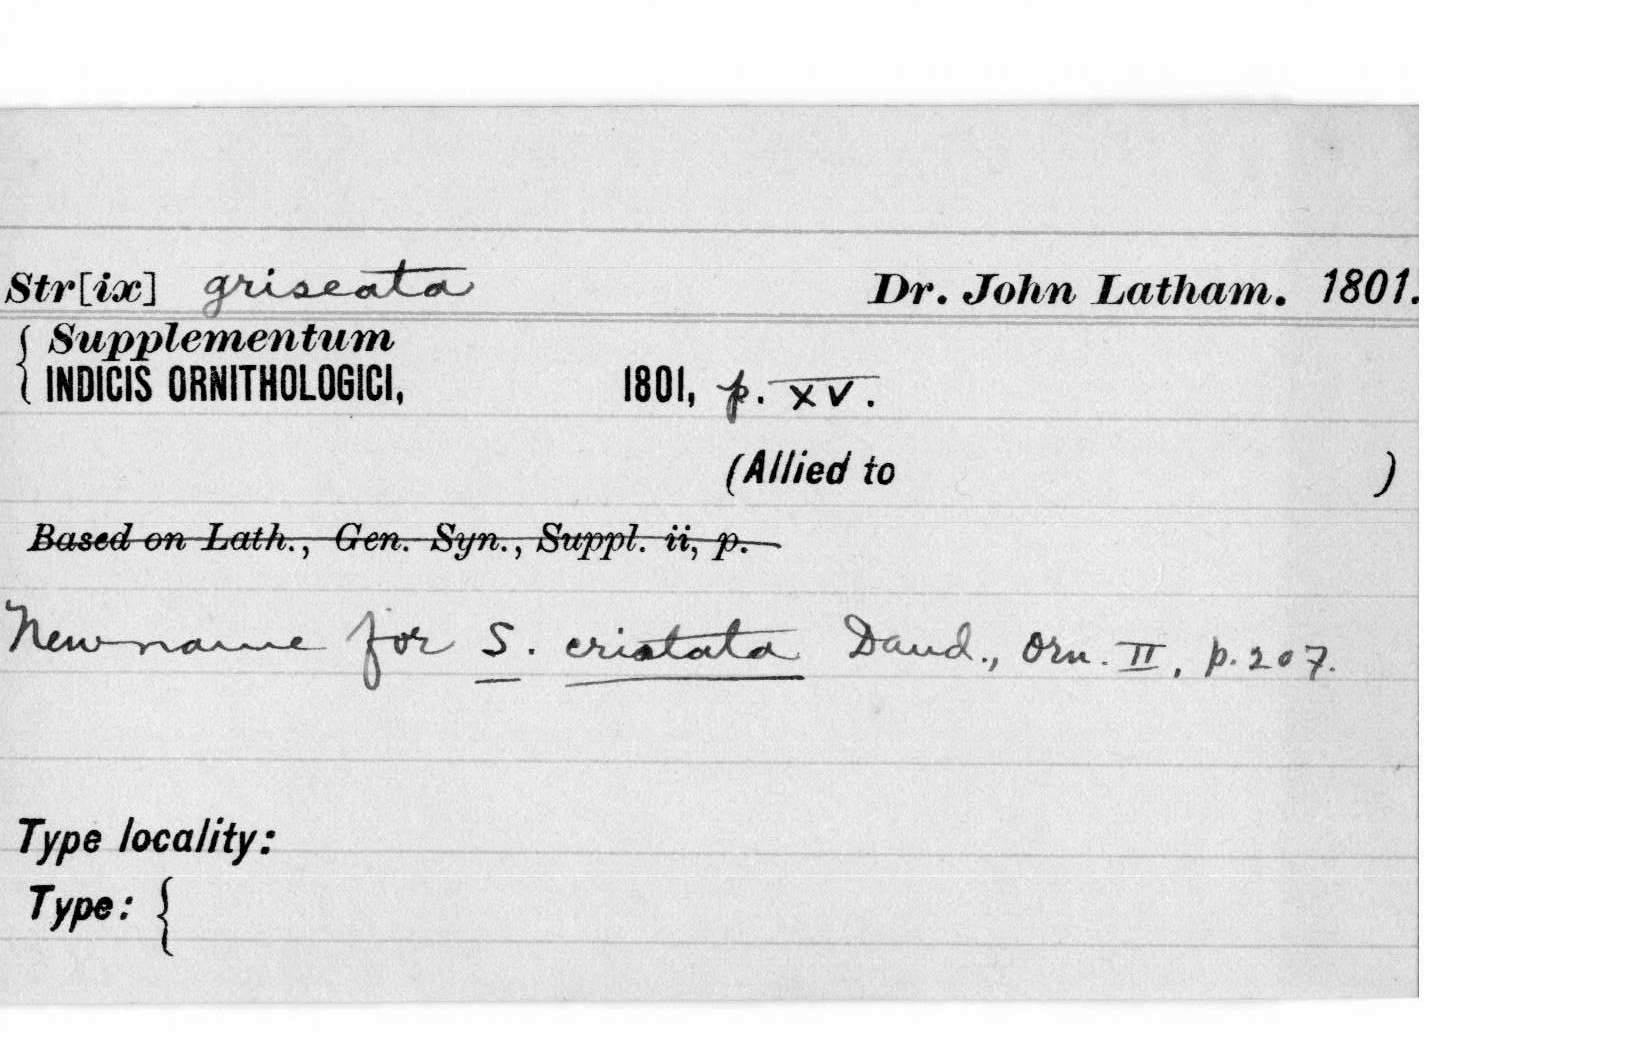 Str[ix] griseata Dr. John Latham. 1801.
{ Supplementum
INDICIS ORNITHOLOGICI, 1801, p. XV.
(Allied to )
Based on Lath., Gen. Syn., Suppl. ii, p.
New name for S. cristata Daud., Orn. II, p. 207.
Type locality:
Type: {